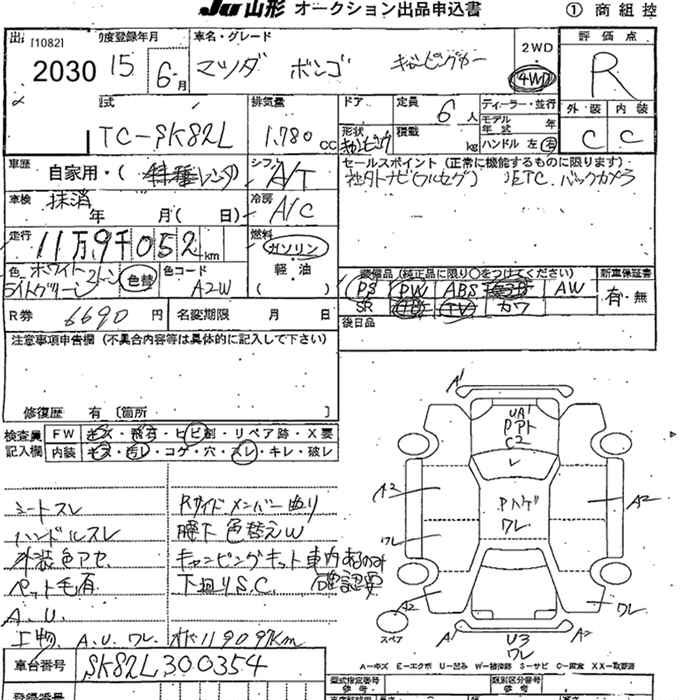 JU山形 オークション出品申込書 ① 商組控
[1082] 2030
初度登録年月 15年 6月
車名・グレード マツダ ボンゴ キャンピングカー
2WD 4WD
評価点 R
外装 内装
C C
型式 TC-SK82L
排気量 1,780 cc
ドア
形状 キャンピング
定員 6人
積載 kg
ディーラー・並行
モデル年式 年
ハンドル 左 右
車歴 自家用・( 特種 レンタ )
シフト A/T
車検 抹消 年 月 ( 日)
冷房 A/C
セールスポイント(正常に機能するものに限ります)
社外ナビ(フルセグ) ETC バックカメラ
走行 11万,9千052 km
燃料 ガソリン 軽・油 ( )
色 ホワイト ライトグリーン 2トーン 色替
色コード A2W
装備品(純正品に限り○をつけてください)
PS PW ABS エアB AW
SR ナビ TV カワ
新車保証書 有・無
R券 6690 円
名変期限 月 日
後日品
注意事項申告欄(不具合内容等は具体的に記入して下さい)
修復歴 有 〔箇所 〕
検査員記入欄
FW キズ・飛石・ヒビ割・リペア跡・X要
内装 キズ・汚レ・コゲ・穴・スレ・キレ・破レ
シートスレ
ハンドルスレ
外装色アセ
ペット毛有
A.U.
上物、A.U. ワレ
Rサイドメンバー曲り
腰下色替えW
キャンピングキット車内あるのみ
下廻りS.C. 確認要
オド119092km
A' UA' Pアト C2
レ
A2 A2
Pハゲ ワレ
ワレ
A2 ワレ
スペア A' U3 ワレ A2
A-キズ E-エクボ U-凹み W-補修跡 S-サビ C-腐食 XX-取替済
車台番号 SK82L300354
登録番号
型式指定番号 参考
類別区分番号 参考